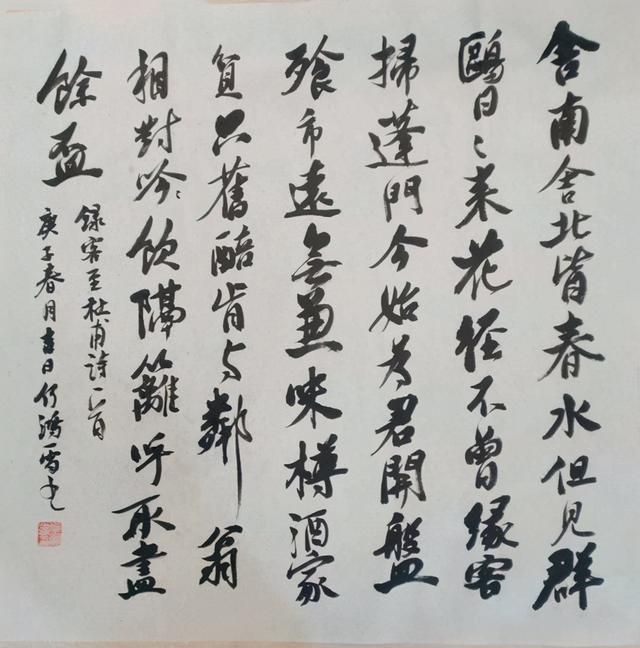 舍南舍北皆春水但見群
鷗日〻來花徑不曾緣客
掃蓬門今始為君開盤
飱市遠無兼味樽酒家
貧只舊醅肯与鄰翁
相對吟〻飲隔籬呼取盡
餘盃
録客至杜甫詩一首
庚子春月吉日何鴻雪